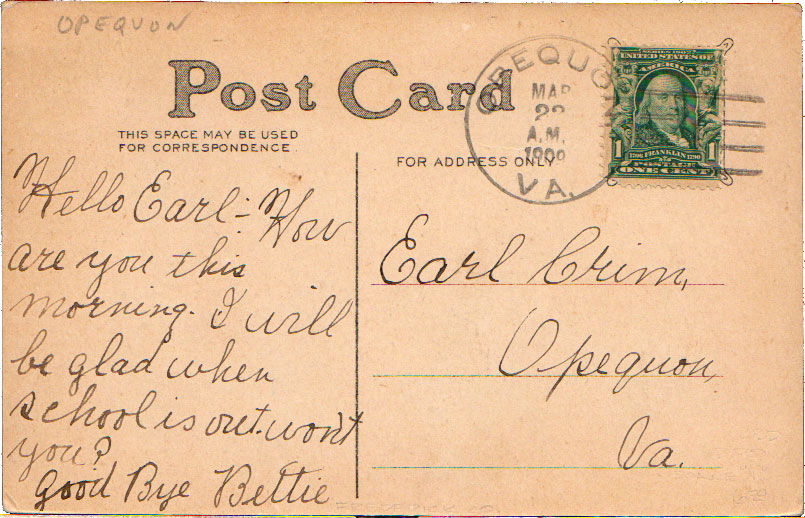 OPEQUON
Post Card
THIS SPACE MAY BE USED
FOR CORRESPONDENCE.
FOR ADDRESS ONLY
OPEQUON
MAR
A.M.
VA.
SERIES 1902
UNITED STATES OF
AMERICA
1 1
FRANKLIN
POSTAGE
ONE CENT
Hello Earl - How
are you this
morning. I will
be glad when
school is out. won't
you?
good Bye Bettie
Earl Crim,
Opequon,
Va.